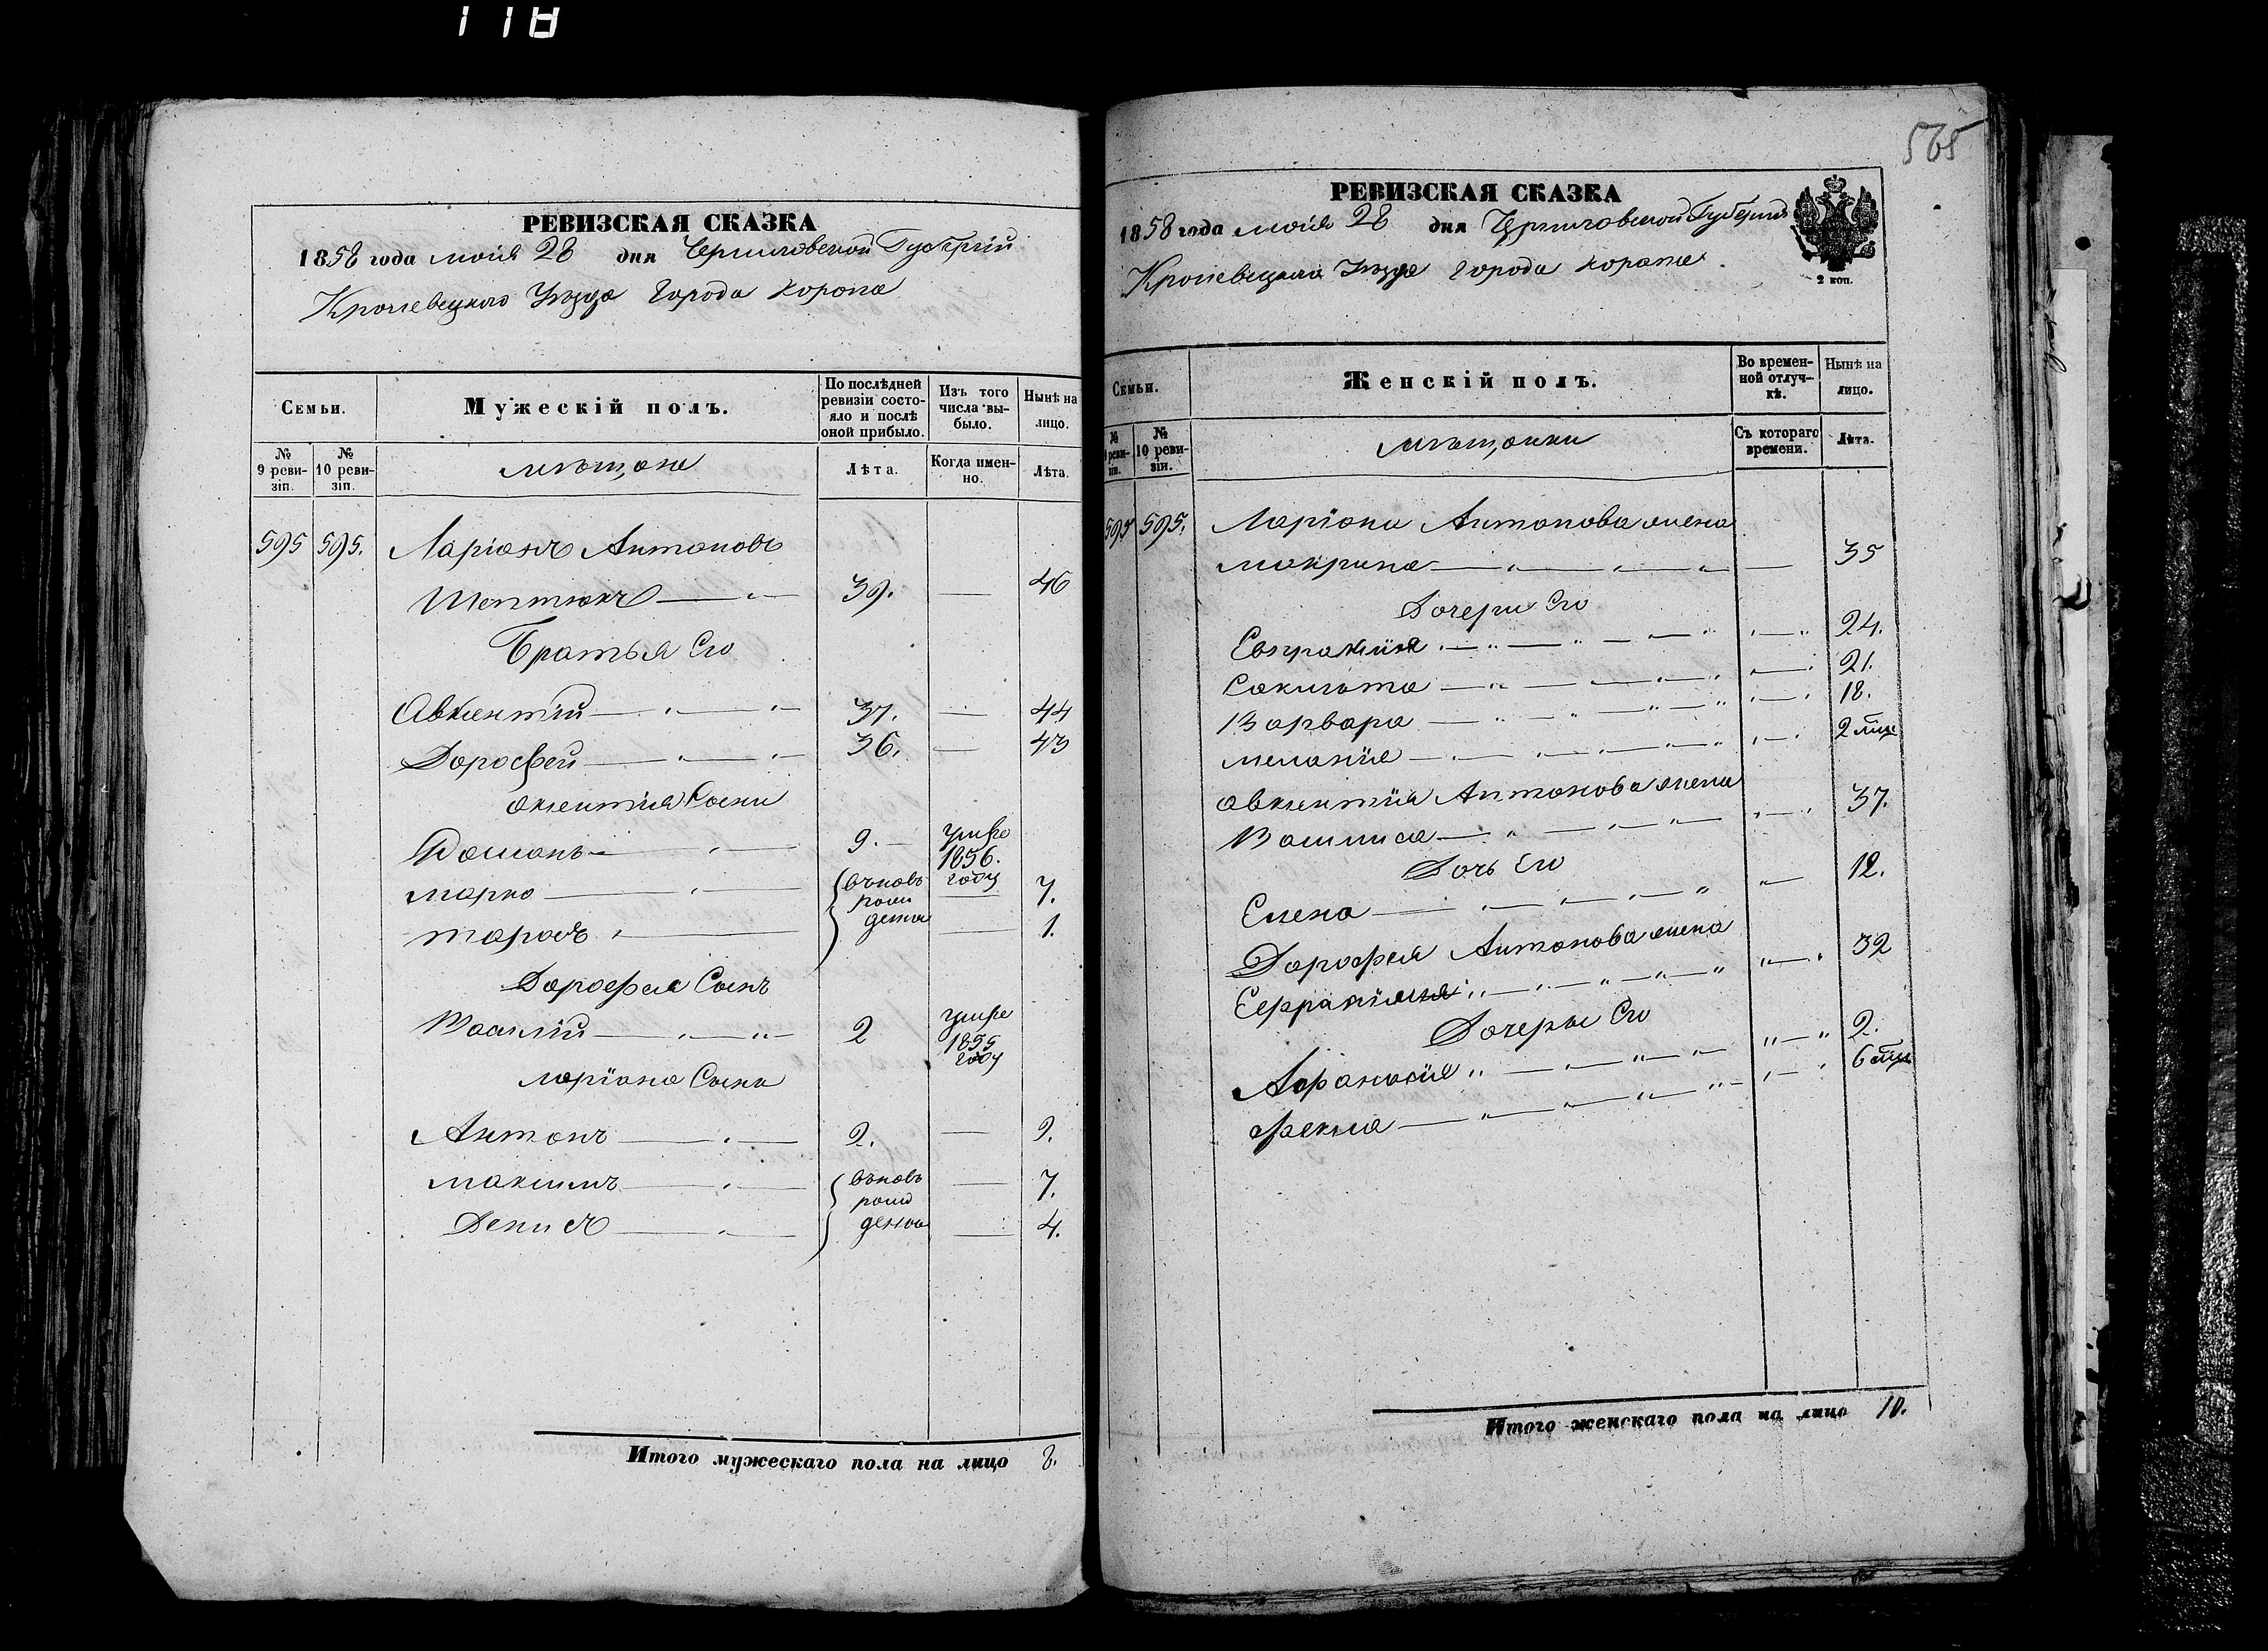 118
РЕВИЗСКАЯ СКАЗКА
1858 года маія 28 дня Черниговской Губерніи
Кролевецкого Уѣзда Города Коропа
Семьи.
Мужескій полъ.
По послѣдней ревизіи состояло и послѣ оной прибыло.
Изъ того числа выбыло.
Нынѣ на лицо.
№ 9 ревизіи.
№ 10 ревизіи.
мѣщане
Лѣта.
Когда именно.
Лѣта.
595 595. Ларіонъ Антоновъ
Шептюкъ 39. 46
Братья Его
Авкентій 37. 44
Дорофей 36. 43
Акентія Сыни
Роман 9. умре 1856. году
Марко вновь рож дена 7.
Тарасъ 1.
Дорофея Сынъ
Василій 2 умре 1855 году
Ларіона Сыни
Антонъ 2. 9.
Максимъ вновь рож дены 7.
Денисъ 4.
Итого мужескаго пола на лицо 8.
565
РЕВИЗСКАЯ СКАЗКА
1858 года маія 28 дня Черниговской Губерніи
Кролевецкаго Уѣзда Города Коропа
2 коп.
Семьи.
Женскій полъ.
Во временной отлучкѣ.
Нынѣ на лицо.
№ 9 ревизіи.
№ 10 ревизіи.
мѣщанки
Съ котораго времени.
Лѣта.
595 595. Ларіона Антонова жена
Макрина 35
Дочери Его
Евпраксия 24.
21.
Варвара 18.
Меланія 2
Авкентія Антонова жена
Василиса 37.
Дочь Его
Елена 12.
Дорофея Антонова жена
32
Дочеры Его
Афанасія 9.
Фекла 6
Итого женскаго пола на лицо 10.